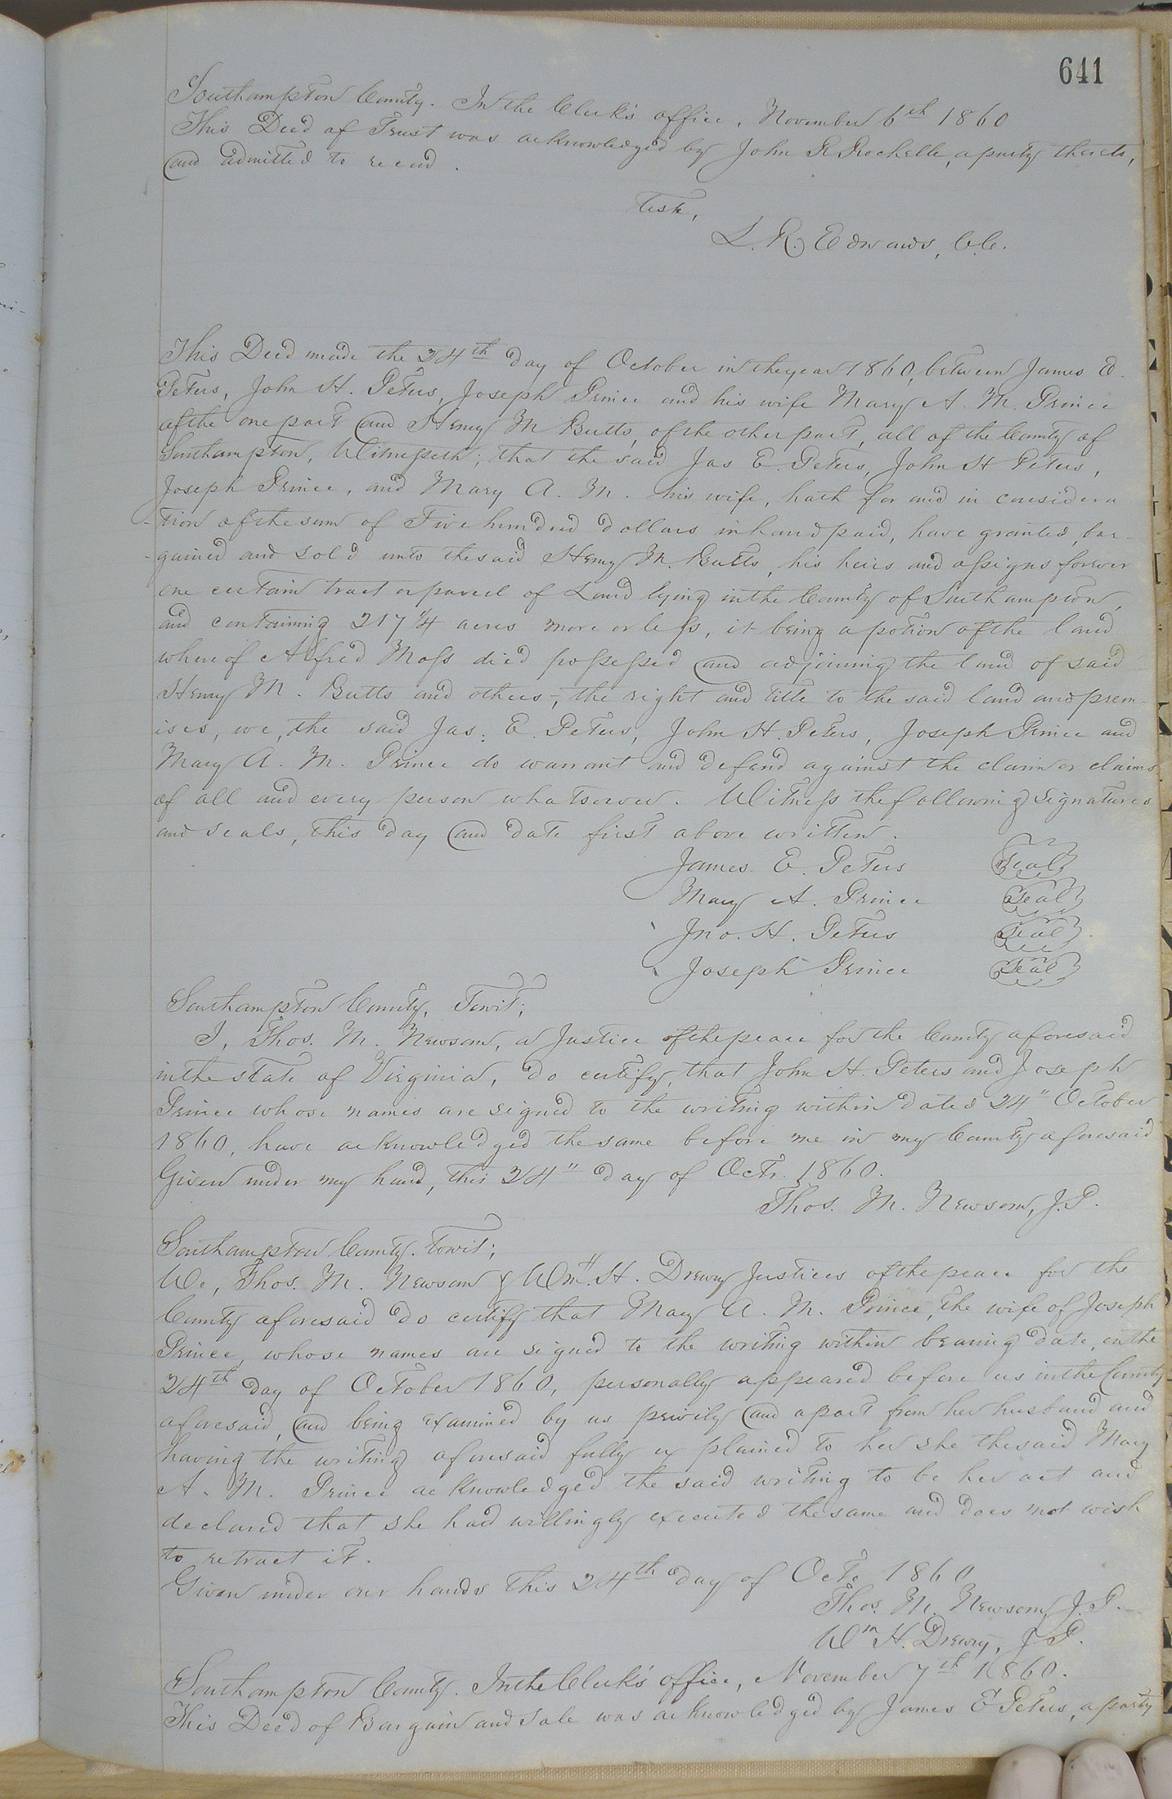 641
Southampton County. In the Clerk's office, November 6th 1860
This Deed of Trust was acknowledged by John R Rochelle, a party thereto,
and admitted to record.
Teste,
L. R. Edwards, C.C.
This Deed made the 24th day of October in the year 1860, between James E.
Peters, John H. Peters, Joseph Prince and his wife Mary A M. Prince
of the one part and Henry M Butts, of the other part, all of the County of
Southampton, Witnesseth; that the said Jas E. Peters, John H Peters,
Joseph Prince, and Mary A. M. his wife, hath for and in considera
-tion of the sum of Five hundred dollars in hand paid, have granted, bar-
-gained and sold unto the said Henry M. Butts, his heirs and assigns forever
one certain tract or parcel of Land lying in the County of Southampton,
and containing 217 1/4 acres more or less, it being a potion of the land
whereof Alfred Moss died possessed and adjoining the land of said
Henry M. Butts and others; the right and title to the said land and prem-
ises, we, the said Jas. E. Peters, John H. Peters, Joseph Prince and
Mary A. M. Prince do warrant and defend against the claim or claims
of all and every person whatsoever. Witness the following signatures
and seals, this day and date first above written.
James E. Peters Seal
Mary A. Prince Seal
Jno. H. Peters Seal
Joseph Prince Seal
Southampton County, Towit;
I, Thos. M. Newsom, a Justice of the peace for the County aforesaid
in the state of Virginia, do certify, that John H. Peters and Joseph
Prince whose names are signed to the writing within dated 24" October
1860, have acknowledged the same before me in my County aforesaid
Given under my hand, this 24" day of Oct. 1860.
Thos. M. Newsom, J.P.
Southampton County. towit;
We, Thos. M. Newsom & Wm. H. Drewry Justices of the peace for the
County aforesaid do certify that Mary A. M. Prince, the wife of Joseph
Prince, whose names are signed to the writing within bearing date, on the
24th day of October 1860, personally appeared before us in the County
aforesaid, and being examined by us privily and apart from her husband and
having the writing aforesaid fully explained to her she the said Mary
A. M. Prince acknowledged the said writing to be her act and
declared that she had willingly executed the same and does not wish
to retract it.
Given under our hands this 24th day of Oct. 1860
Thos. M. Newsom, J.P.
Wm H. Drewry, J P.
Southampton County. In the Clerk's office, November 7th 1860.
This Deed of Bargain and sale was acknowledged by James E Peters, a party